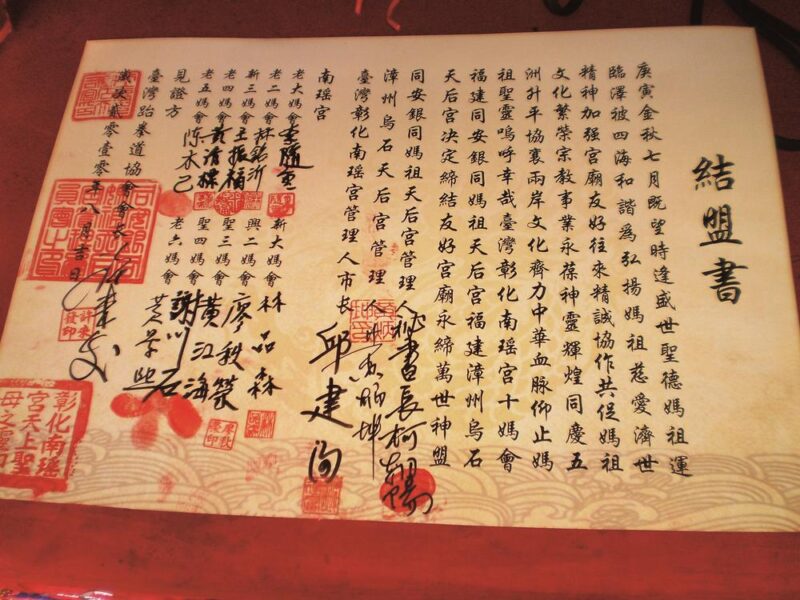 結盟書
庚寅金秋七月既望時逢盛世聖德媽祖運
臨澤被四海和諧為弘揚媽祖慈愛濟世
精神加强宫廟友好往來精誠協作共促媽祖
文化繁榮宗教事業永葆神靈輝煌同慶五
洲升平協襄兩岸文化齊力中華血脉仰止媽
祖聖靈嗚呼幸哉臺灣彰化南瑶宫十媽會
福建同安銀同媽祖天后宫福建漳州烏石
天后宫决定締结友好宫廟永締萬世神盟
同安銀同媽祖天后宫管理人秘書長柯
漳州烏石天后宫管理人
臺灣彰化南瑶宫管理人市长 邱建
南瑶宫
老大媽會 新大媽會 林品森
老二媽會 林銘沂 興二媽會 廖秩
新三媽會 王振楨 聖三媽會 黃江海
老四媽會 聖四媽會 謝川石
老五媽會 陈木己 老六媽會
見證方
臺灣跆拳道協會會長
歲次貳零壹零年八月吉日
彰化南瑤
宮天上聖
母之